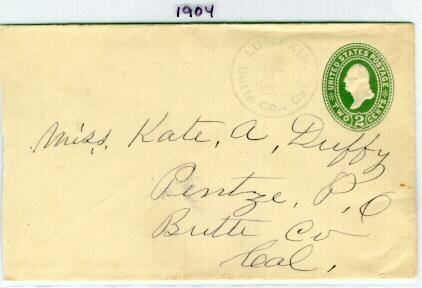 1904
LUMPKIN,
Butte Co., Cal
UNITED STATES POSTAGE
2
TWO CENTS
Miss. Kate, A, Duffy
Pentze, P, O
Butte Co
Cal,